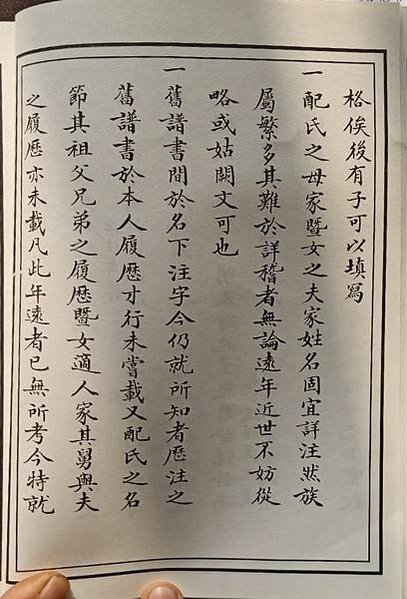 格俟後有子可以填寫
一配氏之母家暨女之夫家姓名固宜詳注然族
屬繁多其難於詳稽者無論遠年近世不妨從
略或姑闕文可也
一舊譜書間於名下注字今仍就所知者歷注之
舊譜書於本人履歷才行未嘗載又配氏之名
節其祖父兄弟之履歷暨女適人家其舅與夫
之履歷亦未載凡此年遠者已無所考今特就